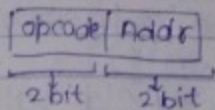 opcode Addr
2 bit 2 bit